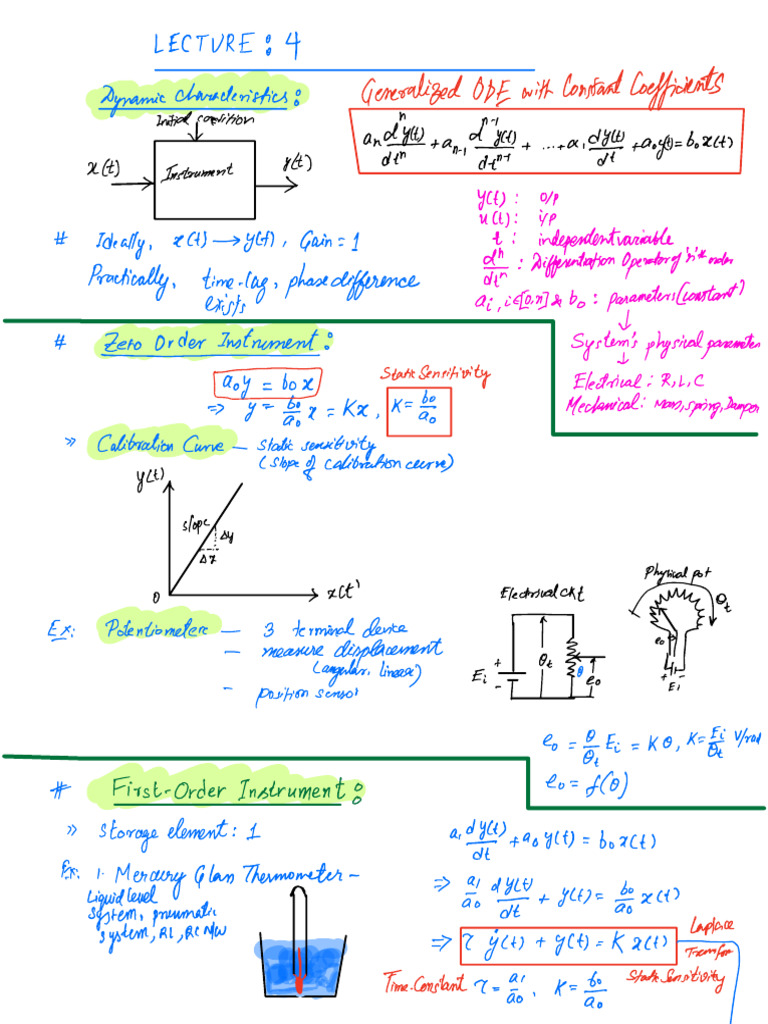 LECTURE: 4
Dynamic Characteristics:
Generalized ODE with Constant Coefficients
Initial condition
x(t)
Instrument
y(t)
aₙ dⁿy(t)/dtⁿ + aₙ₋₁ dⁿ⁻¹y(t)/dtⁿ⁻¹ + ...+ a₁ dy(t)/dt + a₀y(t) = b₀ x(t)
y(t): o/p
u(t): i/p
t: independent variable
dⁿ/dtⁿ: Differentiation Operator of 'n'th order
aᵢ, i∈[0,n] & b₀: parameters (constant)
System's physical parameter
Electrical: R, L, C
Mechanical: Mass, spring, Damper
# Ideally, x(t) → y(t), Gain = 1
Practically, time-lag, phase difference
exists
# Zero Order Instrument:
a₀y = b₀x
Static Sensitivity
⇒ y = b₀/a₀ x = Kx, K = b₀/a₀
» Calibration Curve — static sensitivity
(slope of calibration curve)
y(t)
slope
Δy
Δx
0
x(t)
Ex: Potentiometer — 3 terminal device
— measure displacement
(angular, linear)
- position sensor
Electrical ckt
Eᵢ
+
-
θₜ
θ
e₀
Physical pot
θₜ
e₀
+ -
Eᵢ
e₀ = θ/θₜ Eᵢ = Kθ, K = Eᵢ/θₜ V/rad
e₀ = f(θ)
# First-Order Instrument:
» Storage element: 1
Ex: 1. Mercury Glass Thermometer —
Liquid level
system, pneumatic
system, RL, RC N/W
a₁ dy(t)/dt + a₀y(t) = b₀x(t)
⇒ a₁/a₀ dy(t)/dt + y(t) = b₀/a₀ x(t)
⇒ τ ẏ(t) + y(t) = K x(t)
Laplace
Transform
Time-Constant τ = a₁/a₀, K = b₀/a₀
Static Sensitivity